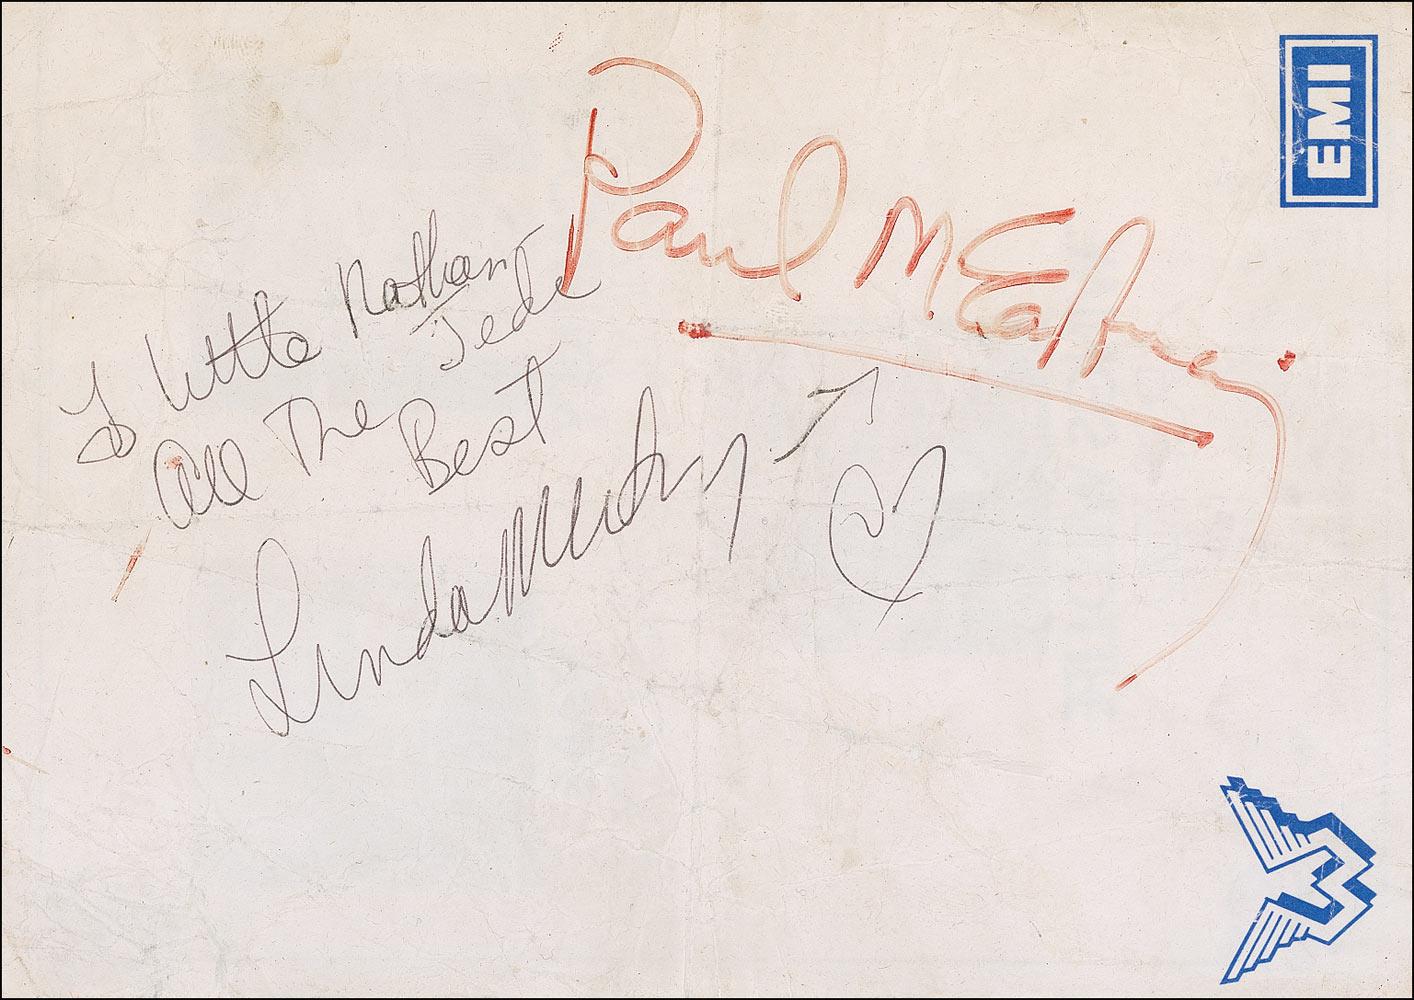 EMI
Paul McCartney
To little Nathan
Jede
All The
Best
Linda McCartney